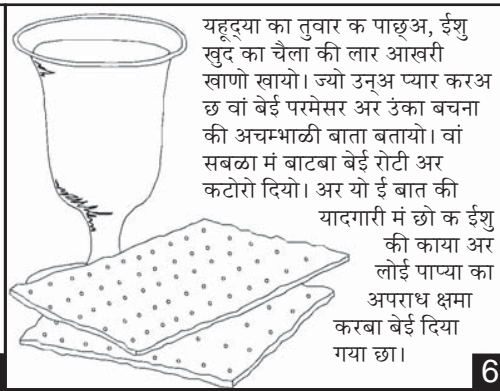 यहूद्या का तुवार क पाछ्अ, ईशु
खुद का चैला की लार आखरी
खाणो खायो। ज्यो उन्अ प्यार करअ
छ वां बेई परमेसर अर उंका बचना
की अचम्भाळी बाता बतायो। वां
सबळा मं बाटबा बेई रोटी अर
कटोरो दियो। अर यो ई बात की
यादगारी मं छो क ईशु
की काया अर
लोई पाप्या का
अपराध क्षमा
करबा बेई दिया
गया छा।
6